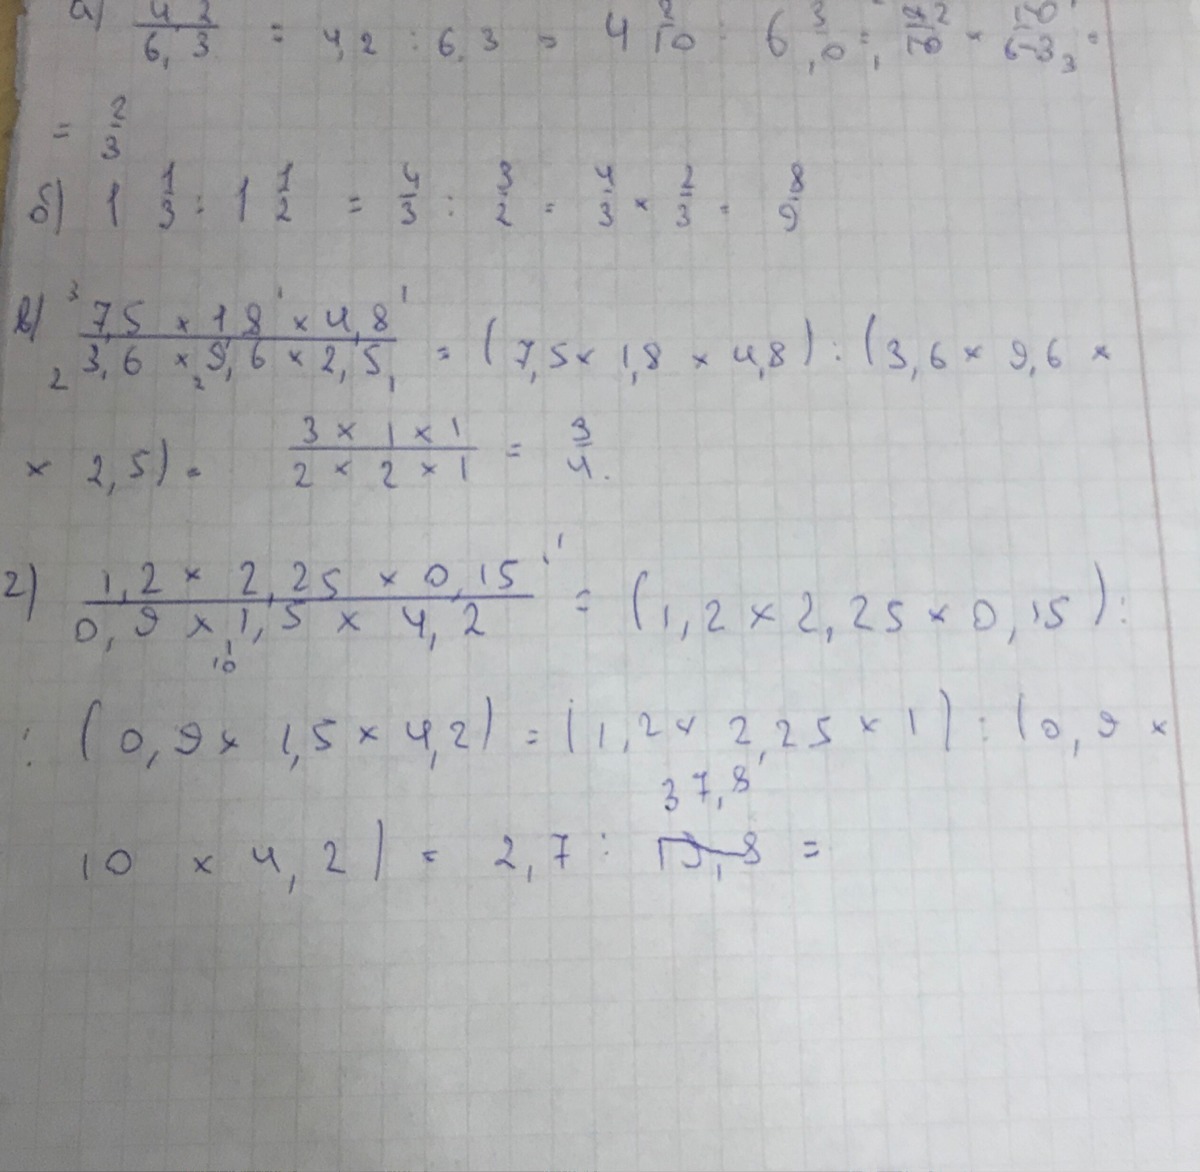 а) 4,2/6,3 = 4,2 : 6,3 = 4 2/10 : 6 3/10 = 42/10 × 10/63 =
= 2/3
б) 1 1/3 : 1 1/2 = 4/3 : 3/2 = 4/3 × 2/3 = 8/9
в) 7,5 × 1,8 × 4,8 / 3,6 × 9,6 × 2,5 = (7,5 × 1,8 × 4,8) : (3,6 × 9,6 ×
× 2,5) = 3 × 1 × 1 / 2 × 2 × 1 = 3/4.
г) 1,2 × 2,25 × 0,15 / 0,9 × 1,5 × 4,2 = (1,2 × 2,25 × 0,15) :
: (0,9 × 1,5 × 4,2) = (1,2 × 2,25 × 1) : (0,9 ×
37,8
10 × 4,2) = 2,7 : =